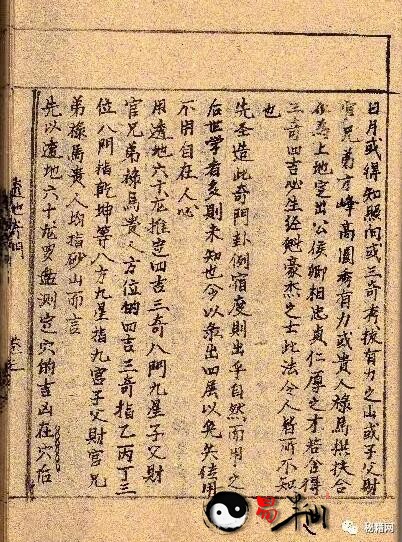 日月或得知照向或三奇考拔有力之山或子父財
官兄弟才峰高圓秀有力或貴人祿馬拱扶合
在為上地定出公侯卿相忠貞仁厚之才若舍得
三奇四吉必生经魁豪杰之士此法令人皆所不知
也
先圣造此奇門卦例宿度則出乎自然而用之
后世學者多則未知也今以条出四层以免失传用
不用自在人心
用透地六十龙推定四吉三奇八門九星子父財
官兄弟祿馬貴人方位纳四吉三奇指乙丙丁三
位八門指乾坤等八方九星指九宮子父財官兄
弟祿馬貴人均指砂山而言
先以透地六十龙罗盘測定穴的吉凶在穴后
透地奇門
卷三
秘籍网